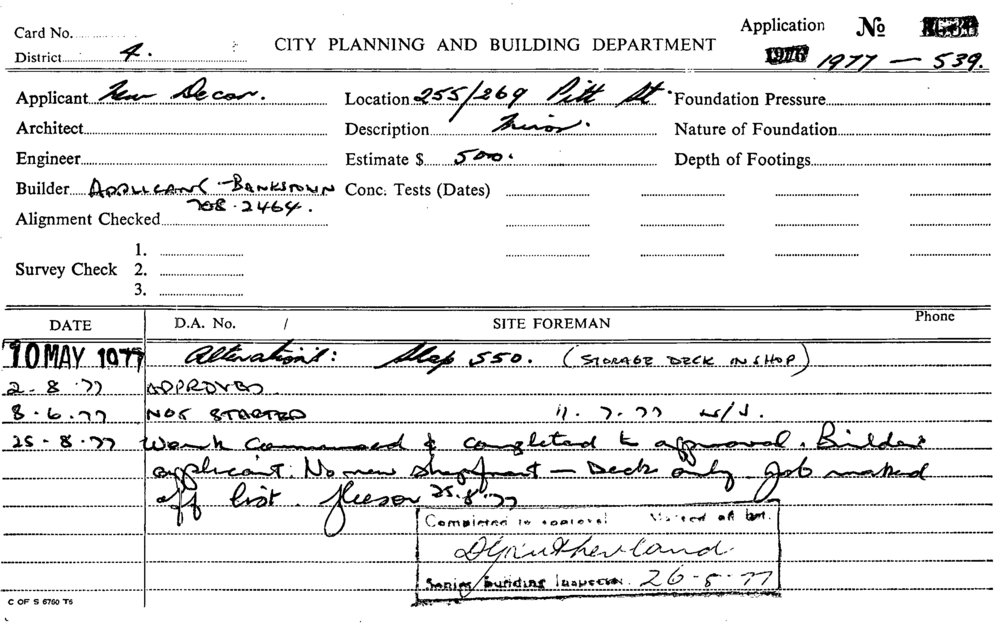 Card No.
Application No
District 4. CITY PLANNING AND BUILDING DEPARTMENT 1976 1977 — 539.
Applicant New Decor. Location 255/269 Pitt St. Foundation Pressure
Architect Description Minor. Nature of Foundation
Engineer Estimate $ 500. Depth of Footings
Builder APPLICANT - BANKSTOWN Conc. Tests (Dates)
708.2464.
Alignment Checked
1.
Survey Check 2.
3.
DATE D.A. No. / SITE FOREMAN Phone
10 MAY 1977 Alterations: Slap 550. (STORAGE DECK IN SHOP)
2-8.77 APPROVED
8.6.77 NOT STARTED 11.7.77 N/S.
25-8.77 Work commenced & completed to approval. Builder
applicant. No new shopfront — Deck only. Job marked
off list. 25.8.77
Completed to approval Marked off list.
Senior Building Inspector. 26-8-77
C OF S 6760 T5